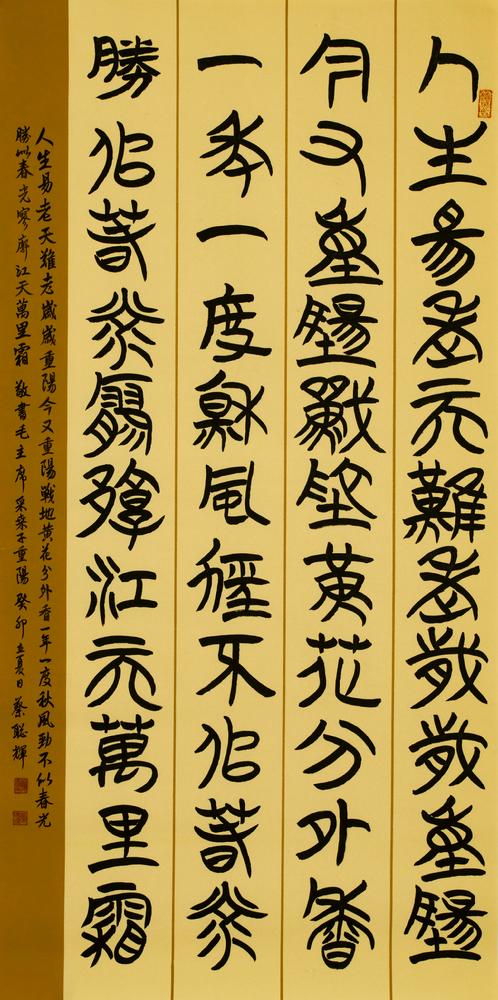 人生易老天難老歲歲重陽
今又重陽戰地黃花分外香
一年一度秋風勁不似春光
勝似春光寥廓江天萬里霜
人生易老天難老歲歲重陽今又重陽戰地黃花分外香一年一度秋風勁不似春光
勝似春光寥廓江天萬里霜 敬書毛主席采桑子重陽 癸卯立夏日 蔡聰輝